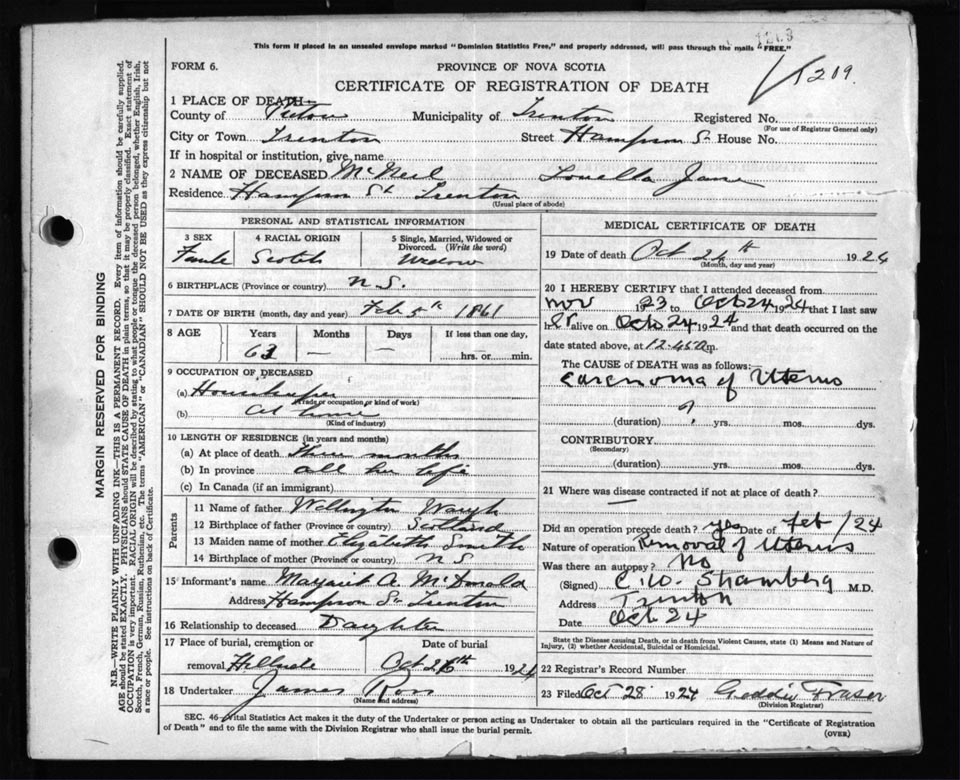 1263
This form if placed in an unsealed envelope marked "Dominion Statistics Free," and properly addressed, will pass through the mails "FREE."
1209.
FORM 6.
PROVINCE OF NOVA SCOTIA
CERTIFICATE OF REGISTRATION OF DEATH
1 PLACE OF DEATH—
County of Pictou Municipality of Trenton Registered No.
(For use of Registrar General only)
City or Town Trenton Street Hampson St House No.
If in hospital or institution, give name
2 NAME OF DECEASED McNeil Louella Jane
Residence Hampson St Trenton
(Usual place of abode)
PERSONAL AND STATISTICAL INFORMATION
3 SEX
Female
4 RACIAL ORIGIN
Scotch
5 Single, Married, Widowed or Divorced. (Write the word)
Widow
6 BIRTHPLACE (Province or country) N.S.
7 DATE OF BIRTH (month, day and year) Feb 5th 1861
8 AGE Years Months Days If less than one day,
63 — — hrs. or min.
9 OCCUPATION OF DECEASED
(a) Housekeeper
(Trade or occupation or kind of work)
(b) at home
(Kind of industry)
10 LENGTH OF RESIDENCE (in years and months)
(a) At place of death three months
(b) In province all her life
(c) In Canada (if an immigrant)
Parents
11 Name of father Wellington Waugh
12 Birthplace of father (Province or country) Scotland
13 Maiden name of mother Elizabeth Smith
14 Birthplace of mother (Province or country) N S
15 Informant's name Margaret A. McDonald
Address Hampson St Trenton
16 Relationship to deceased Daughter
17 Place of burial, cremation or Date of burial
removal Hillside Oct 26th 1924
18 Undertaker James Ross
(Name and address)
MEDICAL CERTIFICATE OF DEATH
19 Date of death Oct 24th 1924
(Month, day and year)
20 I HEREBY CERTIFY that I attended deceased from
Nov 1923 to Oct 24 1924 that I last saw
her alive on Oct 24 1924 and that death occurred on
date stated above, at 12.45 a m.
The CAUSE OF DEATH was as follows:
Carcinoma of Uterus
(duration) yrs. mos. dys.
CONTRIBUTORY
(Secondary)
(duration) yrs. mos. dys.
21 Where was disease contracted if not at place of death?
Did an operation precede death? yes Date of Feb/24
Nature of operation Removal of Uterus
Was there an autopsy? No
(Signed) C.W. Stramberg M.D.
Address Trenton
Date Oct 24
State the Disease causing Death, or in death from Violent Causes, state (1) Means and Nature of Injury, (2) whether Accidental, Suicidal or Homicidal.
22 Registrar's Record Number
23 Filed Oct 28 1924 Geddie Fraser
(Division Registrar)
SEC. 46—Vital Statistics Act makes it the duty of the Undertaker or person acting as Undertaker to obtain all the particulars required in the "Certificate of Registration
of Death" and to file the same with the Division Registrar who shall issue the burial permit.
(OVER)
MARGIN RESERVED FOR BINDING
N.B.—WRITE PLAINLY WITH UNFADING INK—THIS IS A PERMANENT RECORD. Every item of information should be carefully supplied.
AGE should be stated EXACTLY. PHYSICIANS should STATE CAUSE OF DEATH in plain terms, so that it may be properly classified. Exact statement of
OCCUPATION is very important. RACIAL ORIGIN will be described by stating to what people or tongue the deceased person belonged, whether English, Irish,
Scotch, French, German, Russian, Ruthenian, etc. The terms "AMERICAN" or "CANADIAN" SHOULD NOT BE USED as they express citizenship but not
a race or people. See instructions on back of Certificate.